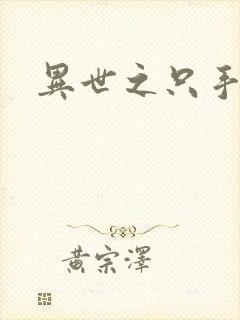 異世之只手
黃宗澤